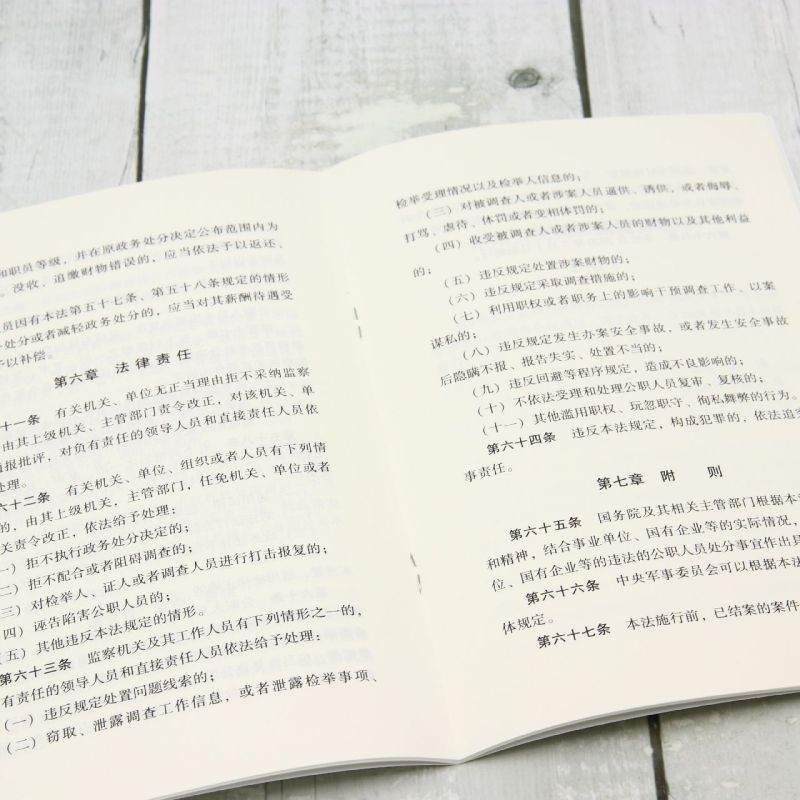 和职员等级，并在原政务处分决定公布范围内为
。没收、追缴财物错误的，应当依法予以返还、
员因有本法第五十七条、第五十八条规定的情形
处分或者减轻政务处分的，应当对其薪酬待遇受
予以补偿。
第六章 法律责任
十一条 有关机关、单位无正当理由拒不采纳监察
由其上级机关、主管部门责令改正，对该机关、单
通报批评，对负有责任的领导人员和直接责任人员依
处理。
六十二条 有关机关、单位、组织或者人员有下列情
的，由其上级机关，主管部门，任免机关、单位或者
关责令改正，依法给予处理：
一）拒不执行政务处分决定的；
二）拒不配合或者阻碍调查的；
三）对检举人、证人或者调查人员进行打击报复的；
四）诬告陷害公职人员的；
五）其他违反本法规定的情形。
第六十三条 监察机关及其工作人员有下列情形之一的，
有责任的领导人员和直接责任人员依法给予处理：
（一）违反规定处置问题线索的；
（二）窃取、泄露调查工作信息，或者泄露检举事项、
检举受理情况以及检举人信息的；
（三）对被调查人或者涉案人员逼供、诱供，或者侮辱、
打骂、虐待、体罚或者变相体罚的；
（四）收受被调查人或者涉案人员的财物以及其他利益
的；
（五）违反规定处置涉案财物的；
（六）违反规定采取调查措施的；
（七）利用职权或者职务上的影响干预调查工作、以案
谋私的；
（八）违反规定发生办案安全事故，或者发生安全事故
后隐瞒不报、报告失实、处置不当的；
（九）违反回避等程序规定，造成不良影响的；
（十）不依法受理和处理公职人员复审、复核的；
（十一）其他滥用职权、玩忽职守、徇私舞弊的行为。
第六十四条 违反本法规定，构成犯罪的，依法追究
事责任。
第七章 附 则
第六十五条 国务院及其相关主管部门根据本
和精神，结合事业单位、国有企业等的实际情况，
位、国有企业等的违法的公职人员处分事宜作出具
第六十六条 中央军事委员会可以根据本法
体规定。
第六十七条 本法施行前，已结案的案件